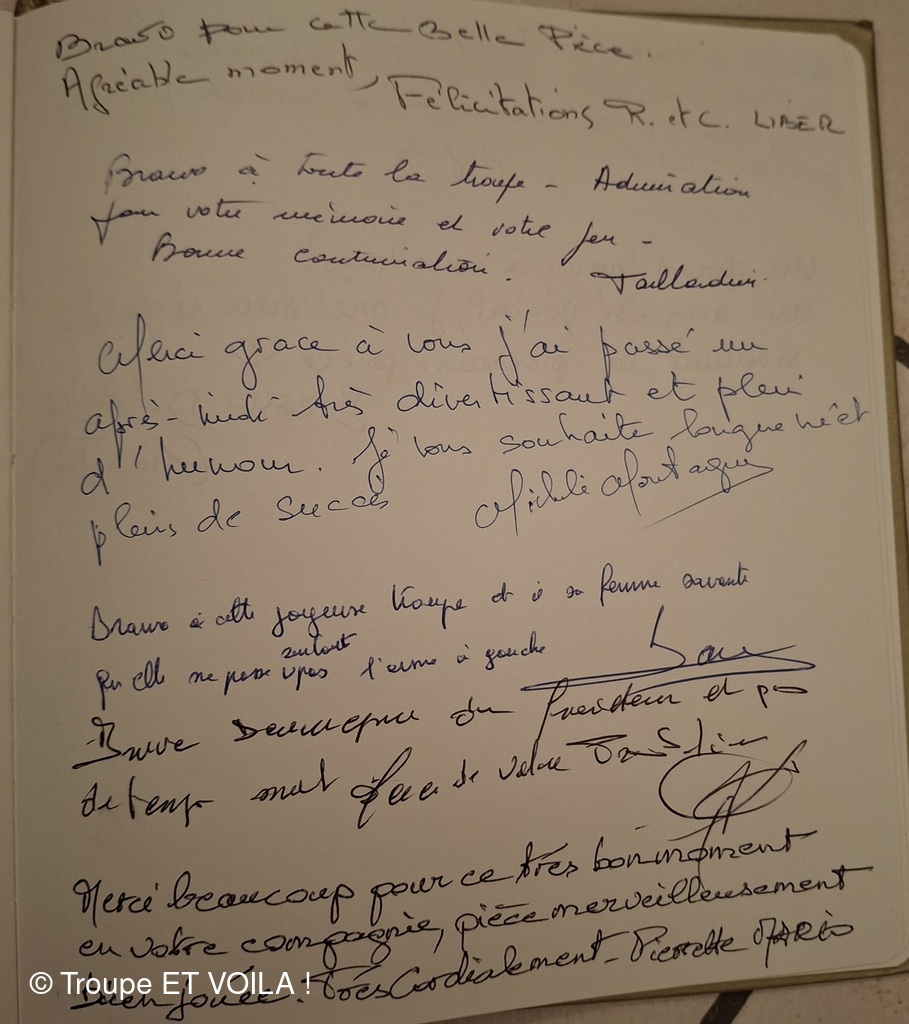 Bravo pour cette Belle Pièce.
Agréable moment, Félicitations R. et C. LIBER
Bravo à toute la troupe - Admiration
pour votre mémoire et votre jeu -
Bonne continuation. Taillandier
Merci grace à vous j'ai passé un
après-midi très divertissant et plein
d'humour. Je vous souhaite longue vie et
pleins de succès Michèle Montagne
Bravo à cette joyeuse troupe et à sa femme savante
qu'elle ne passe surtout pas l'arme à gauche
du et
de temps de votre
Merci beaucoup pour ce très bon moment
en votre compagnie, pièce merveilleusement
bien jouée. Très Cordialement - Pierrette
© Troupe ET VOILA !